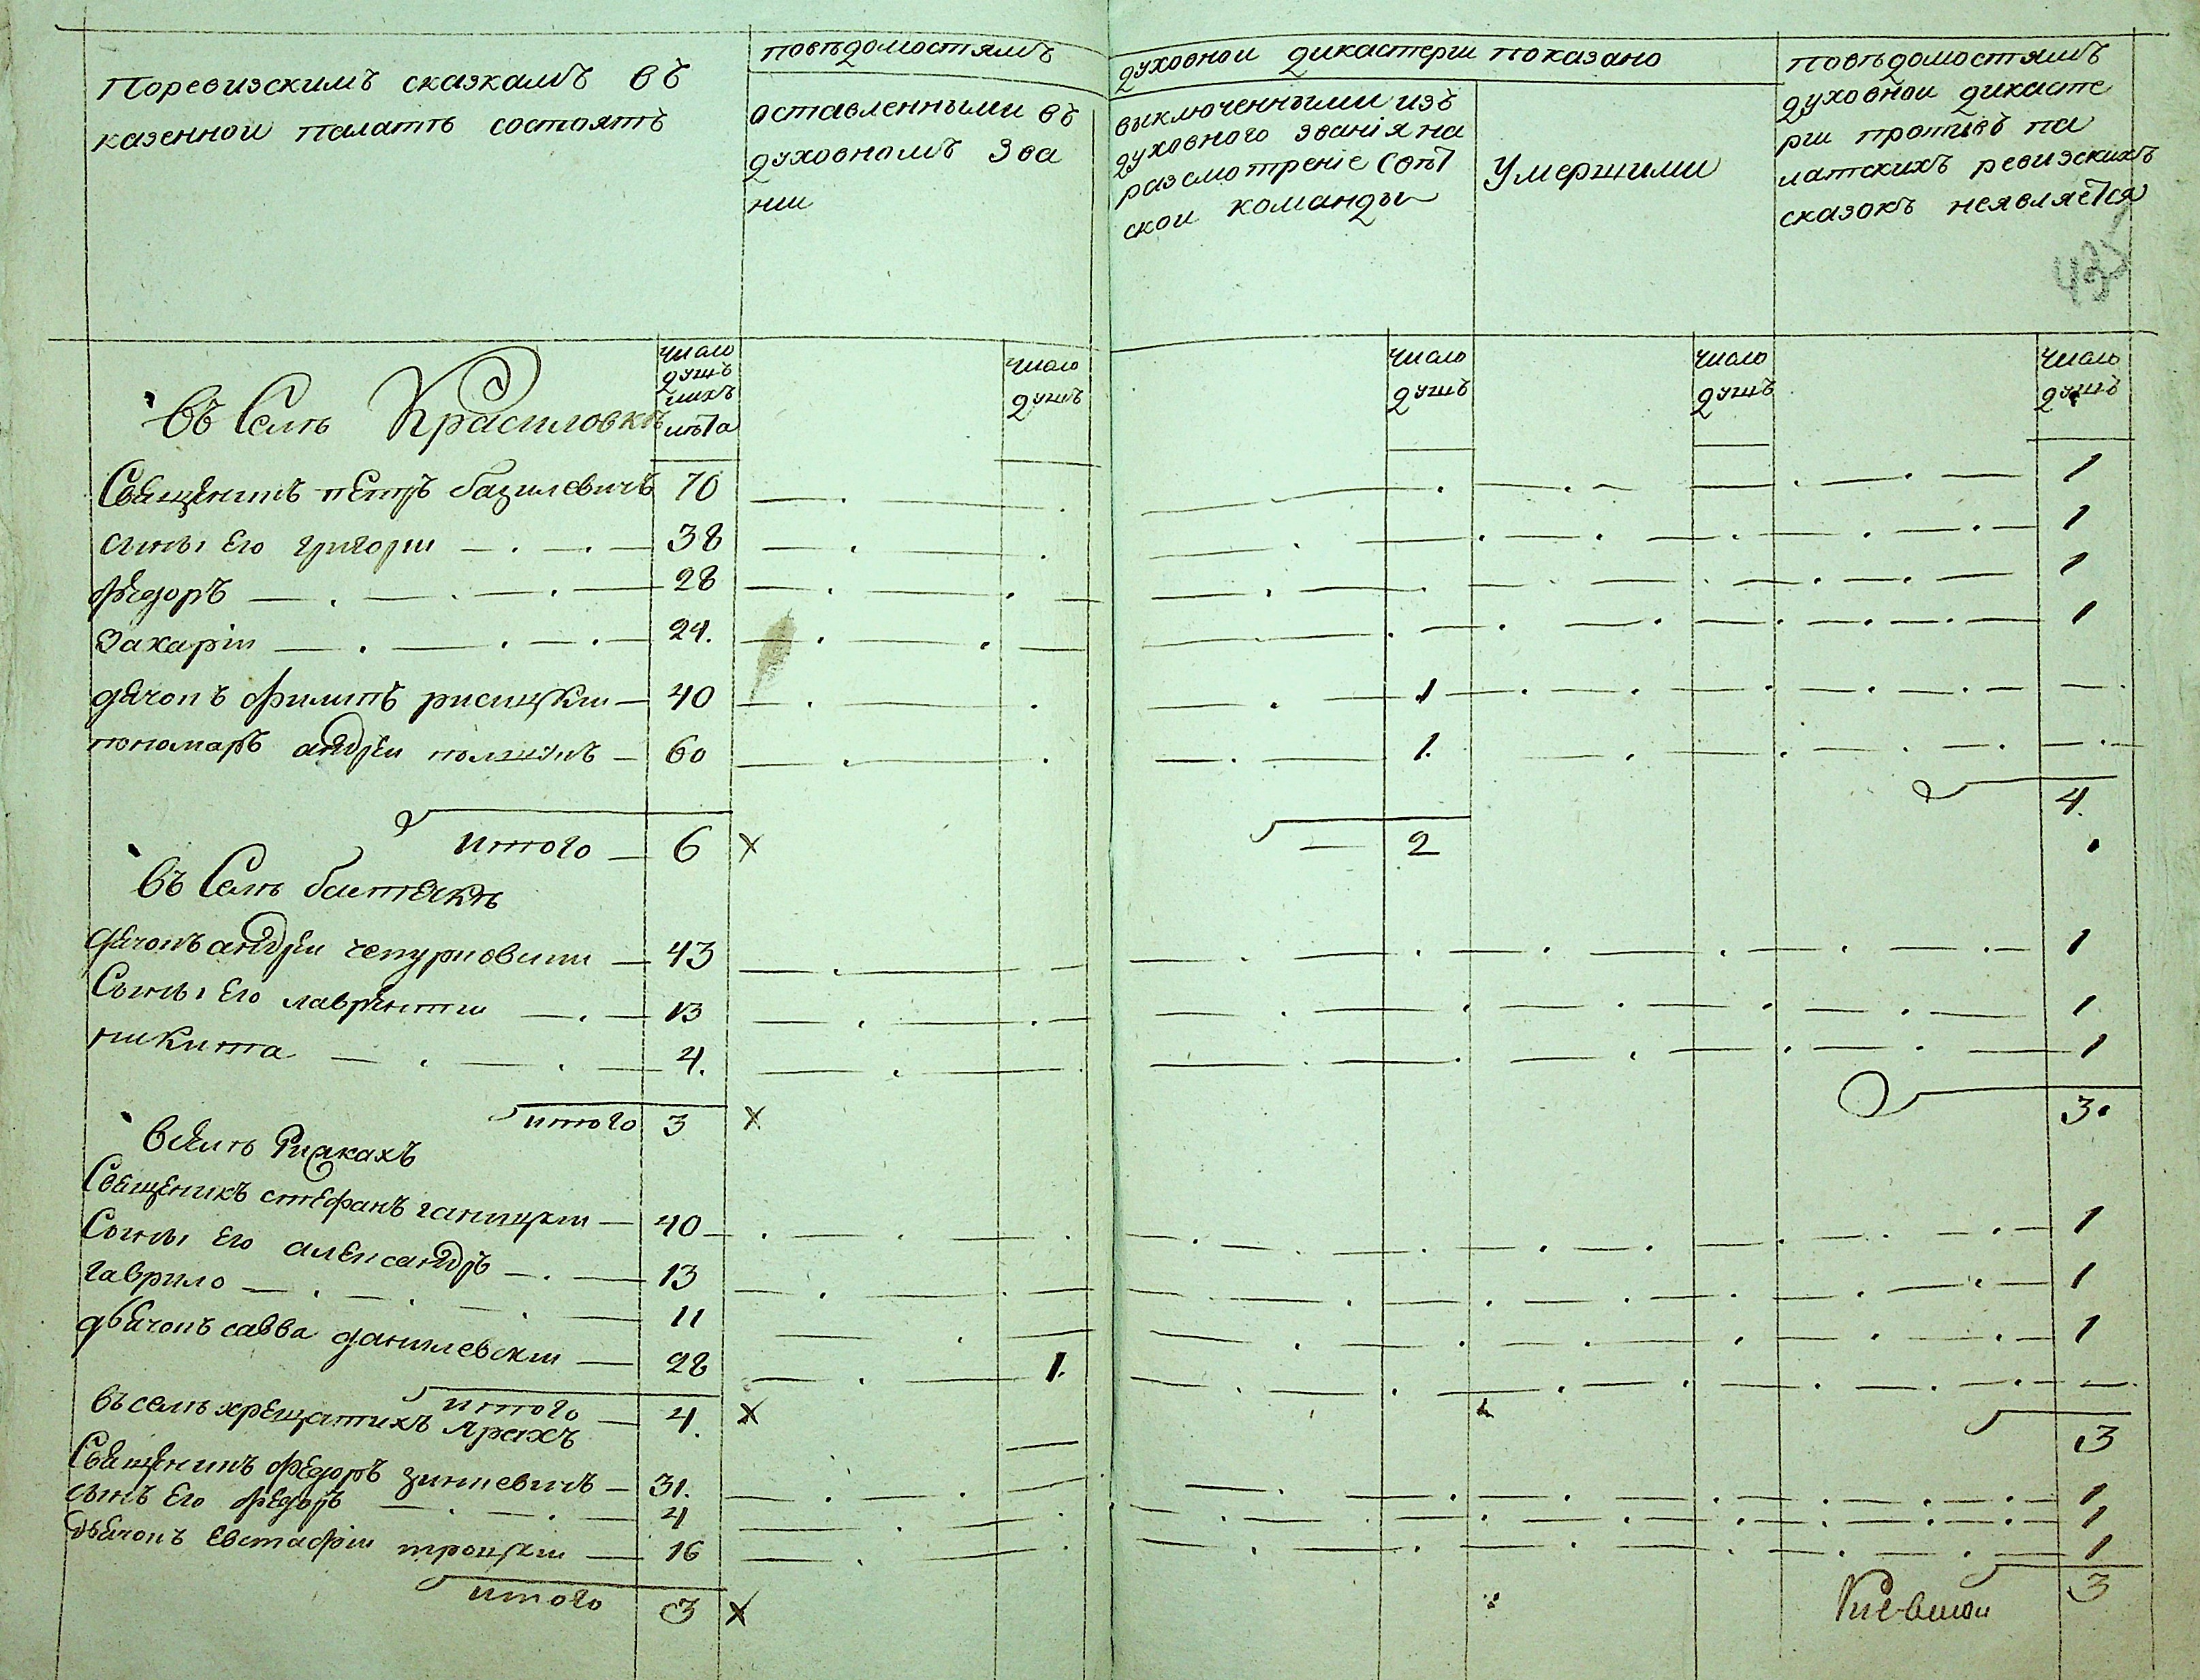 Поревизскимъ сказкамъ въ
казеннои палатѣ состоятъ
повѣдомостямъ
оставленными въ
духовномъ зва
нии
духовнои дикастерии показано
выключенными изъ
духовного званія на
разсмотреніе свѣт
скои команды
Умершими
повѣдомостямъ
духовнои дикасте
рии противъ па
латскихъ ревизскихъ
сказокъ неявляется
435
число
душъ
ихъ
лѣта
число
душъ
число
душъ
число
душъ
число
душъ
Въ Селѣ Красиловкѣ
Священикъ петръ базилевичъ 70 1
сыны Его григории 38 1
федоръ 28 1
Захаріи 24. 1
дячокъ филипъ рисицкии 40 1
пономаръ андреи полщукъ 60 1.
итого 6 х 2 4.
Въ Селѣ бистежкѣ
дячокъ андреи чепурковскии 43 1
Сыны Его лаврентии 13 1
никита 4. 1
итого 3 х 3.
Вселѣ Рудкахъ
Священикъ стефанъ ганицкии 40 1
Сыны Его александръ 13 1
гаврило 11 1
дьячокъ савва данилевскии 28 1.
итого 4. х 3
въ селѣ хрещатихъ Ярахъ
Священикъ федоръ зинкевичъ 31. 1
сынъ Его федоръ 4 1
дьячокъ Евстафіи троцкии 16 1
итого 3 х 3
Киевскои